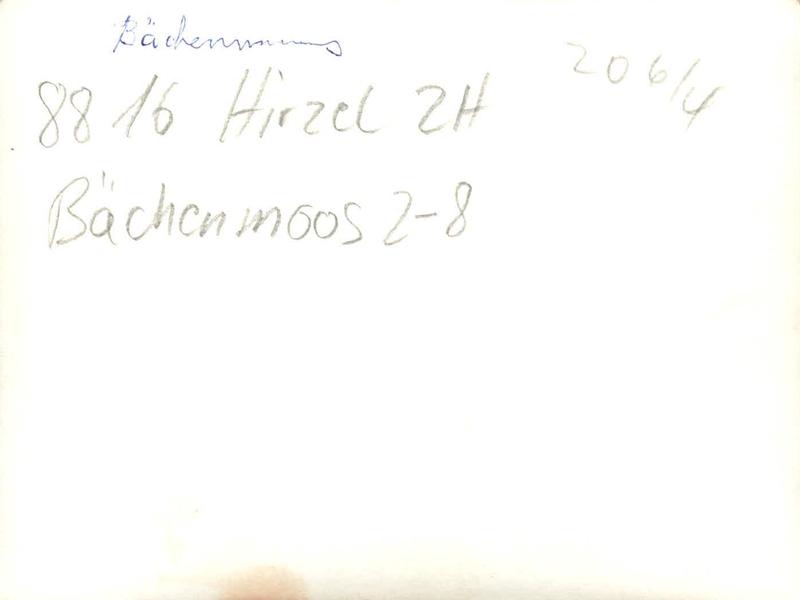 Bächenmoos
206/4
8816 Hirzel ZH
Bächenmoos 2-8